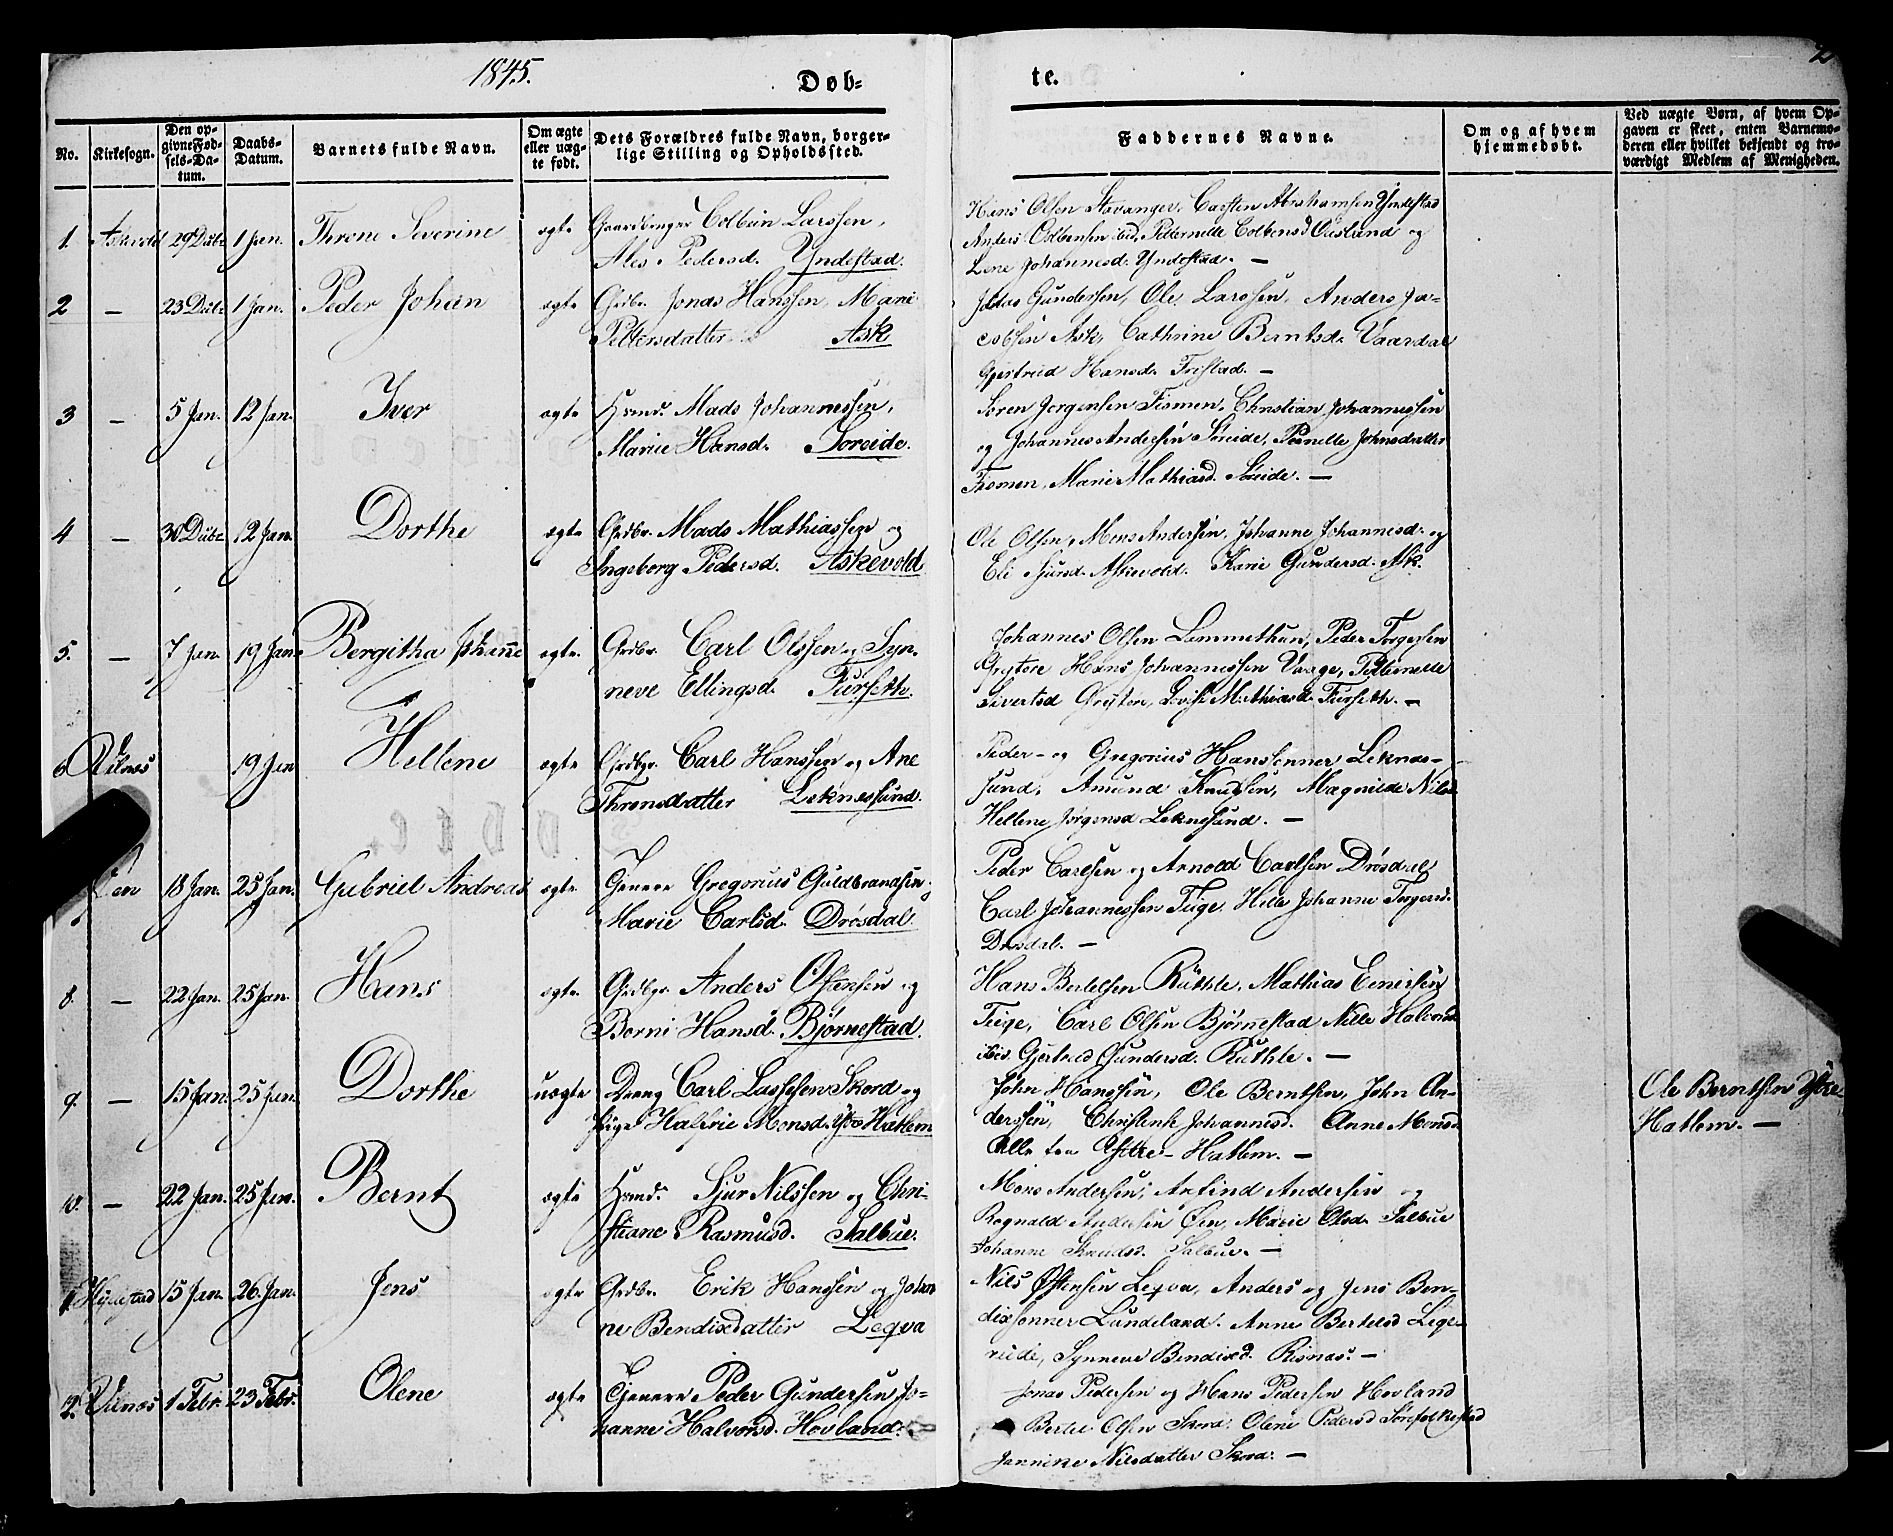 1845.
Døb-
te.
2
No.
Kirkesogn.
Den op-
givne Fød-
sels-Da-
tum.
Daabs-
Datum.
Barnets fulde Navn.
Om ægte
eller uæg-
te født.
Dets Forældres fulde Navn, borger-
lige Stilling og Opholdssted.
Faddernes Navne.
Om og af hvem
hjemmedøbt.
Ved uægte Børn, af hvem Op-
gaven er skeet, enten Barnemo-
deren eller hvilket bekjendt og tro-
værdigt Medlem af Menigheden.
1. Askevold 29 Dcbr 1 Jan. Throne Severine ægte Gaardbruger Colbein Larssen,
Ales Pedersd. Yndestad.
Hans Olsen Stavanger, Carsten Abrahamsen Yndestad
Anders Colbensen ibid, Petternelle Colbensd Ousland og
Lene Johannesd. Yndestad. —
2 — 23 Dcbr 1 Jan. Peder Johan ægte Grdbr. Jonas Hanssen, Marie
Pettersdatter Ask
Gundersen, Ole Larssen, Anders Ja-
cobsen Ask, Cathrine Berntsd. Vaardal
Gjertrud Hansd. Fristad. —
3 — 5 Jan. 12 Jan. Iver ægte Hsmd. Mads Johannessen,
Marie Hansd. Søreide.
Søren Jørgensen Tismen, Christian Johannessen
og Johannes Andersen Søreide, Pernelle Johnsdatter
Marie Mathiasd. Søreide. —
4 — 30 Dcbr 12 Jan. Dorthe ægte Grdbr. Mads Mathiassen og
Ingeborg Pedersd. Askevold
Ole Olsen, Mons Andersen, Johanne Johannesd. og
Eli Sjursd. Askevold. Karie Gundersd. Ask.
5. — 7 Jan. 19 Jan. Bergitha Johanne ægte. Grdbr. Carl Olssen og Syn-
neve Ellingsd. Furseth.
Johannes Olsen Lammethun, Peder Torgersen
Grytøre Hans Johannessen Vaage, Petternelle
Sivertsd Grytøre, Lovise Mathiasd. Furseth. —
6 Vilnes 19 Jan Hellene ægte Grdbgr. Carl Hanssen og Ane
Thronsdatter Leknessund.
Peder - og Gregorius Hanssønner Leknes-
sund, Amund Knudsen, Magnilde Nilsd
Hellene Jørgensd Leknesund. —
Øen 18 Jan. 25 Jan. Gabriel Andreas ægte. Gregorius Guldbrandsen
Marie Carlsd. Drøsdal.
Peder Carlsen og Arnold Carlsen Drøsdal
Carl Johannessen Teige. Johanne Torgersd.
Drøsdal. —
8. — 22 Jan. 25 Jan. Hans ægte Grdbgr. Anders Ostensen og
Borni Hansd. Bjørnestad.
Hans Bertelsen Ruthle, Mathias
Teige, Carl Olsen Bjørnestad Nille Halvorsd
ibid. Gjertrud Gundersd. Ruthle. —
9. — 15 Jan. 25 Jan. Dorthe uægte Dreng Carl Lassesen Skord og
Pige Halfrie Monsd. Ytre Hatlem
John Hanssen, Ole Berntsen, John An-
derssen, Christense Johannesd. Anne Monsd
Alle fra Yttre-Hatlem. —
Ole Berntsen Ytre-
Hatlem. —
10. — 22 Jan. 25 Jan. Bernt ægte Hsmd. Sjur Nilssen og Chri-
stiane Rasmusd. Salbue.
Mons Andersen, Anfind Andersen og
Rognald Andersen Øen, Marie Olsd. Salbue
Johanne Knudsd. Salbue. —
11 Hyllestad 15 Jan. 26. Jan. Jens ægte Grdbr. Erik Hanssen og Johan-
ne Bendixdatter Leqva
Nils Østensen Leqva, Anders og Jens Ben-
dixsønner Lundeland. Anne Bertelsd Lige-
rude, Synneve Bendixd. Risnes. —
12. Vilnes 1 Febr. 23 Febr. Olene ægte Peder Gundersen Jo-
hanne Halvorsd. Hovland.
Jonas Pedersen og Hans Pedersen Hovland
Bertel Olsen Skord. Olene Pedersd
Jannike Nilsdatter Skord. —